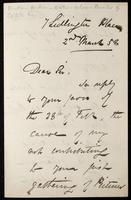 7 Sullington Place
2nd March 58
Dear Sir.
In reply
to your favor of
the 28th Feb. the
cause of my
not contributing
to your first
gathering of Pictures